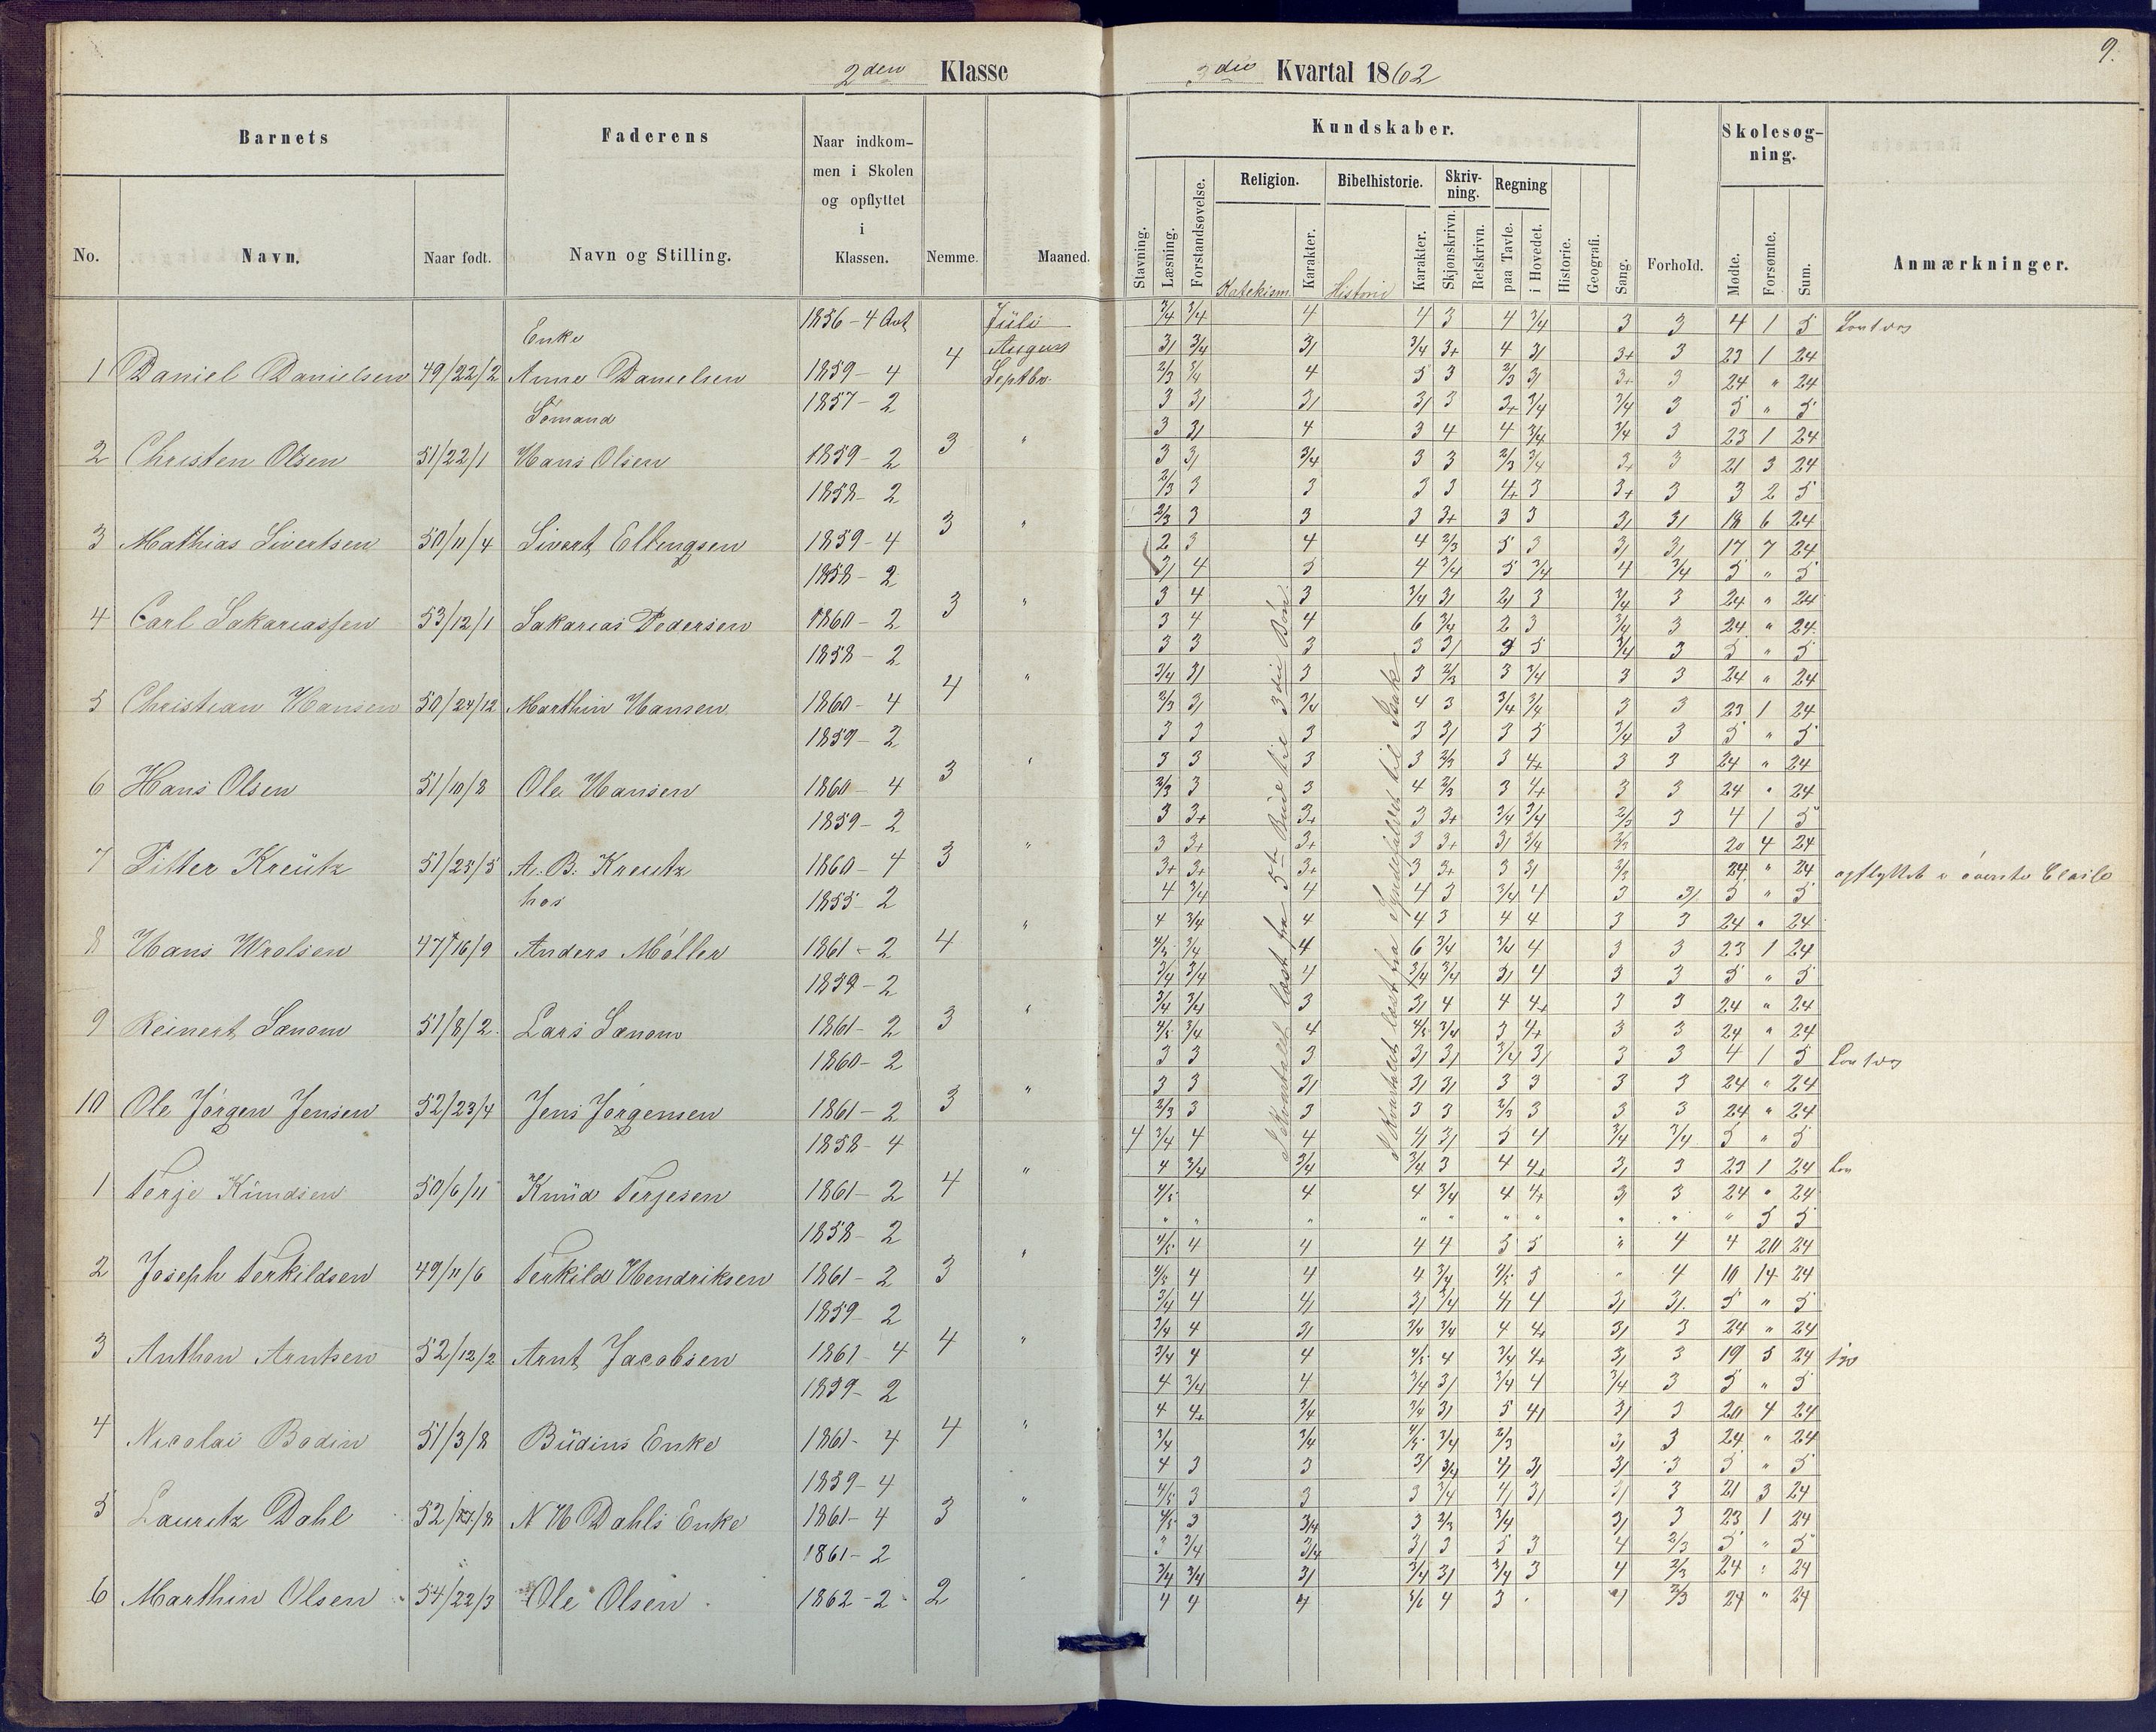 2den Klasse
Barnets
Faderens
Naar indkom-
men i Skolen
og opflyttet
i
Klassen.
No.
Navn.
Naar født.
Navn og Stilling.
Nemme.
Maaned.
Enke
1856 - 4
Juli
August
1 Daniel Danielsen 49/22/2 Anne Danielsen 1859 - 4 4 Septbr.
Sømand
1857 - 2
2 Christen Olsen 51/22/1 Hans Olsen 1859 - 2 3 "
1858 - 2
3 Mathias Sivertsen 50/11/4 Sivert Ellingsen 1859 - 4 3 "
1858 - 2
4 Carl Sakariassen 53/12/1 Sakarias Pedersen 1860 - 2 3 "
1858 - 2
5 Christian Hansen 50/24/12 Marthin Hansen 1860 - 4 4 "
1859 - 2
6 Hans Olsen 51/10/8 Ole Hansen 1860 - 4 3 "
1859 - 2
7 Pitter Kreutz 51/25/5 A. B. Kreutz 1860 - 4 3 "
hos
1855 - 2
8 Hans Wrolsen 47/16/9 Anders Møller 1861 - 2 4 "
1859 - 2
9 Reinert Sanom 51/8/2 Lars Sanom 1861 - 2 3 "
1860 - 2
10 Ole Jørgen Jensen 52/23/4 Jens Jørgensen 1861 - 2 3 "
1858 - 4
1 Terje Knudsen 50/6/11 Knud Terjesen 1861 - 2 4 "
1858 - 2
2 Joseph Terkildsen 49/11/6 Terkild Hendriksen 1861 - 2 3 "
1859 - 2
3 Anthon Arntsen 52/12/2 Arnt Jacobsen 1861 - 4 4 "
1859 - 2
4 Nicolai Bodin 51/3/8 Büdins Enke 1861 - 4 4 "
1859 - 4
5 Lauritz Dahl N H Dahls Enke 1861 - 4 3 "
1861 - 2
6 Marthin Olsen 54/22/3 Ole Olsen 1862 - 2 2
9.
3die Kvartal 1862
Kundskaber.
Skolesøg-
ning.
Religion.
Bibelhistorie.
Skriv-
ning.
Regning
Stavning.
Læsning.
Forstandsøvelse.
Katekism
Karakter.
Historie
Karakter.
Skjønskrivn.
Retskrivn.
paa Tavle.
i Hovedet.
Historie.
Geografi.
Sang.
Forhold.
Mødte.
Forsømte.
Sum.
Anmærkninger.
I Kvartalet læst fra 5te Bud til 3die Bøn
I Kvartalet læst fra Syndefaldet til Isak
3/4 3/4 4 4 3 4 3/4 3 3 4 1 5
3/ 3/4 3/ 3/4 3+ 4 3/ 3+ 3 23 1 24
2/3 3/4 4 5 3 2/3 3/ 3+ 3 24 " 24
3 3/ 3/ 3/ 3 3+ 3/4 3/4 3 5 " 5
3 3/ 4 3 4 4 3/4 3/4 3 23 1 24
3 3/ 3/4 3 3 2/3 3/4 3+ 3 21 3 24
2/3 3 3 3 3 4+ 3 3+ 3 3 2 5
2/3 3 3 3 3+ 3 3 3/ 3/ 18 6 24
2 3 4 4 2/3 5 3 3/ 3/ 17 7 24
3/ 4 5 4 3/4 5 3/4 4 3/4 5 " 5
3 4 3 3/4 3/ 2/ 3 3/4 3 24 " 24
3 4 4 6 3/4 2 3 3/4 3 24 " 24
3 3 3 3/ 5 3/4 3 5 " 5
3/4 3/ 3 3 2/3 3 3/4 3 3 24 " 24
2/3 3/ 3/4 4 3 3/4 3/4 3 3 23 1 24
3 3 3 3 3/ 3 5 3/4 3 5 " 5
3 3 3 3 2/3 3 4+ 3 3 24 " 24
2/3 3 3 4 2/3 3 4+ 3 3 24 " 24
3 3+ 3+ 3 3+ 3/4 3/4 2/3 3 4 1 5
3 3+ 3+ 3 3+ 3/ 3/4 2/3 20 4 24
3+ 3+ 3+ 3 3+ 3 3/ 2/3 24 " 24 opflyttet i øverste Classe
4 3/4 4 4 3 3/4 4 3 3/ 5 " 5
4 3/4 4 4 3 4 4 3 3 24 " 24
4/5 3/4 4 6 3/4 3/4 4 3 3 23 1 24
3/4 3/4 4 3/4 3/4 3/ 4 3 3 5 " 5
3/4 3/4 3 3/ 4 4 4+ 3 3 24 " 24
4/5 3/4 4 4/5 3/4 3 4+ 3 3 24 " 24
3 3 3 3/ 3/ 3/4 3/ 3 3 4 1 5
3 3 3/ 3/ 3/ 3 3 3 3 24 " 24
2/3 3 3 3 3 2/3 3 3 3 24 " 24
4 3/4 4 4 4/ 3/ 5 4 3/4 3/4 5 " 5
4 3/4 3/4 3/4 3 4 4+ 3/ 3 23 1 24
4/5 4 4 3/4 4 4+ 3/ 3 24 " 24
" " " " " " " " " " 5 5
4/5 4 4 4 4 5 5 " 4 4 20 24
4/5 4 4 4 3/4 4/5 5 " 4 10 14 24
3/4 4 4/ 3/ 3/4 4/ 4 3/ 3/ 5 " 5
3/4 4 3/ 3/4 3/4 4 4+ 3/ 3 24 " 24
3/4 4 4 4/5 4 3/4 4+ 3/ 3 19 5 24
4 3/4 4 3/4 3/ 3/4 4 3/4 3 5 " 5
4 4+ 3/4 3/4 3/ 5 4/ 3/ 3 20 4 24
3/4 3/4 4/5 3/4 2/3 3/ 3 24 " 24
4 3 3 3/ 3/4 4/ 3/ 3/ 3 5 " 5
4/5 3 3 3 3/4 4/ 3/ 3/ 3 21 3 24
4/5 3 3/4 3 2/3 3/4 3/ 3 23 1 24
3 3/4 3/4 3/ 3 5 3 4 2/3 5 " 5
3/4 3/4 3/ 3/4 3/ 3/4 3 4 2/3 24 " 24
4 4 4 4 3 2/3 24 " 24